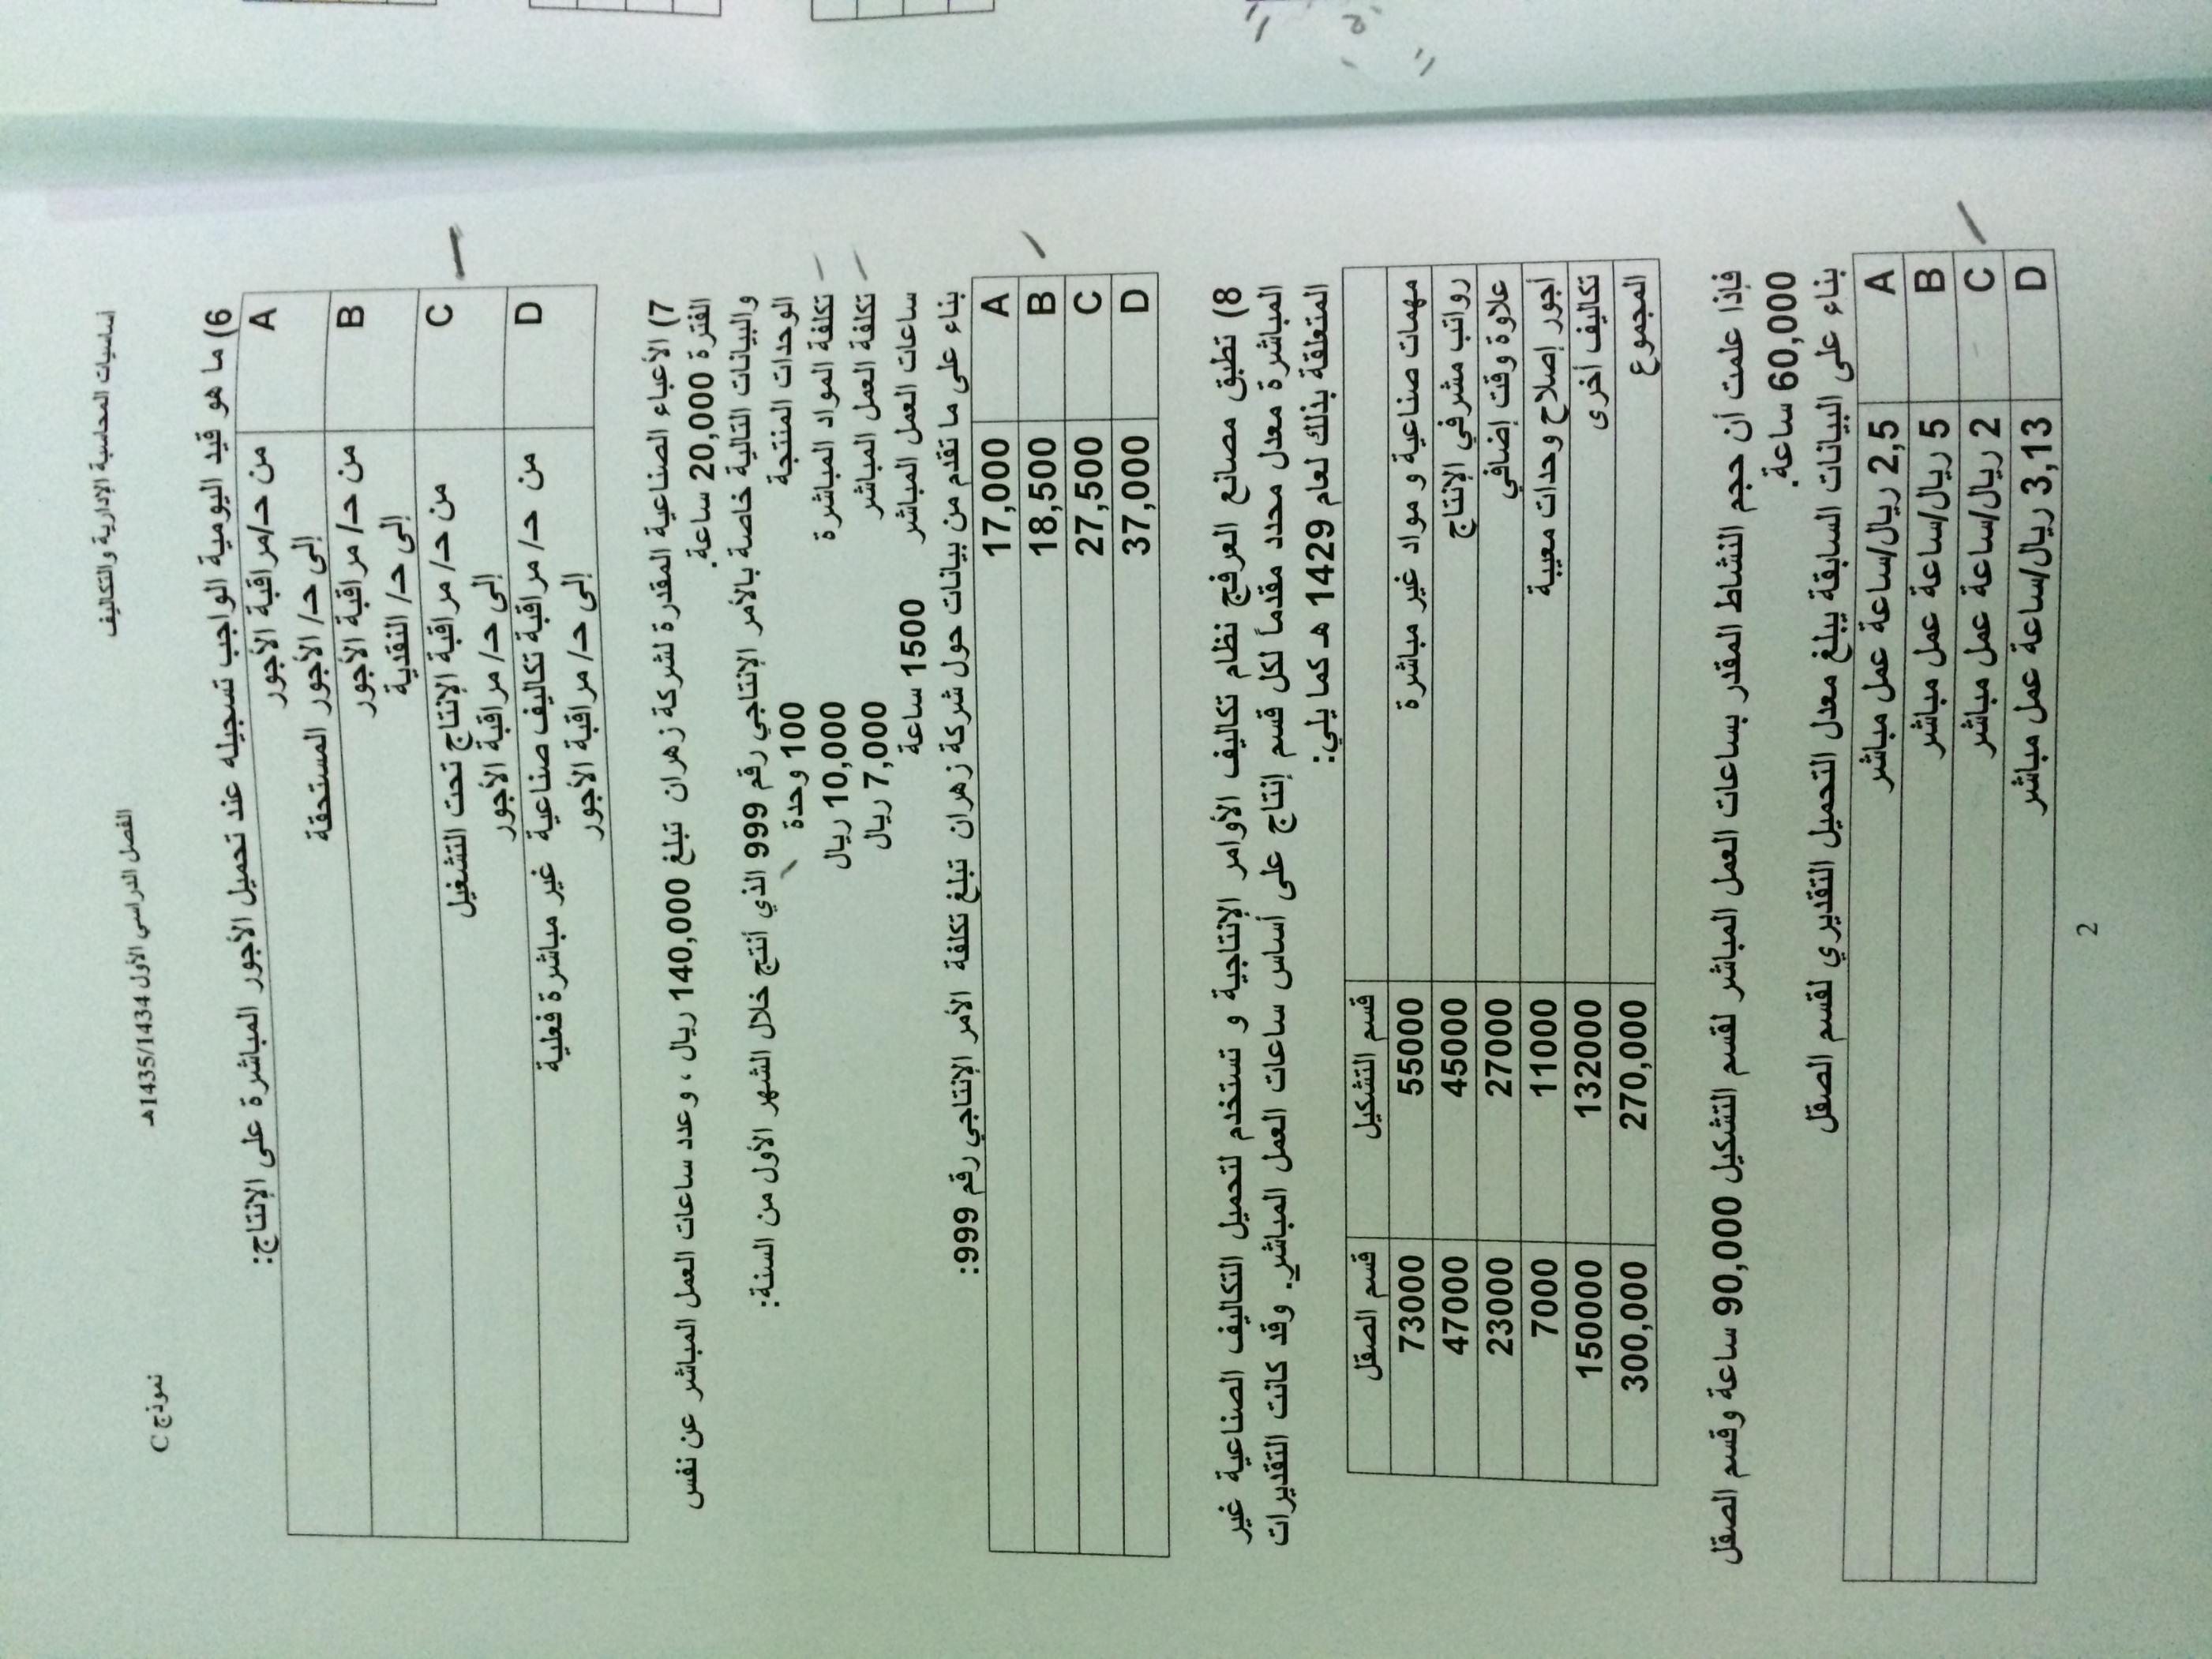 أساسيات المحاسبة الإدارية والتكاليف الفصل الدراسي الأول 1435/1434هـ نموذج C
6) ما هو قيد اليومية الواجب تسجيله عند تحميل الأجور المباشرة على الإنتاج:
A من حـ/مراقبة الأجور
إلى حـ/ الأجور المستحقة
B من حـ/ مراقبة الأجور
إلى حـ/ النقدية
C من حـ/ مراقبة الإنتاج تحت التشغيل
إلى حـ/ مراقبة الأجور
D من حـ/ مراقبة تكاليف صناعية غير مباشرة فعلية
إلى حـ/ مراقبة الأجور
7) الأعباء الصناعية المقدرة لشركة زهران تبلغ 140,000 ريال ، وعدد ساعات العمل المباشر عن نفس
الفترة 20,000 ساعة.
والبيانات التالية خاصة بالأمر الإنتاجي رقم 999 الذي أنتج خلال الشهر الأول من السنة:
الوحدات المنتجة 100 وحدة
تكلفة المواد المباشرة 10,000 ريال
تكلفة العمل المباشر 7,000 ريال
ساعات العمل المباشر 1500 ساعة
بناء على ما تقدم من بيانات حول شركة زهران تبلغ تكلفة الأمر الإنتاجي رقم 999:
A 17,000
B 18,500
C 27,500
D 37,000
8) تطبق مصانع العرفج نظام تكاليف الأوامر الإنتاجية و تستخدم لتحميل التكاليف الصناعية غير
المباشرة معدل محدد مقدماً لكل قسم إنتاج على أساس ساعات العمل المباشر. وقد كانت التقديرات
المتعلقة بذلك لعام 1429 هـ كما يلي:
قسم التشكيل قسم الصقل
مهمات صناعية و مواد غير مباشرة 55000 73000
رواتب مشرفي الإنتاج 45000 47000
علاوة وقت إضافي 27000 23000
أجور إصلاح وحدات معيبة 11000 7000
تكاليف أخرى 132000 150000
المجموع 270,000 300,000
فإذا علمت أن حجم النشاط المقدر بساعات العمل المباشر لقسم التشكيل 90,000 ساعة وقسم الصقل
60,000 ساعة.
بناء على البيانات السابقة يبلغ معدل التحميل التقديري لقسم الصقل
A 2,5 ريال/ساعة عمل مباشر
B 5 ريال/ساعة عمل مباشر
C 2 ريال/ساعة عمل مباشر
D 3,13 ريال/ساعة عمل مباشر
2